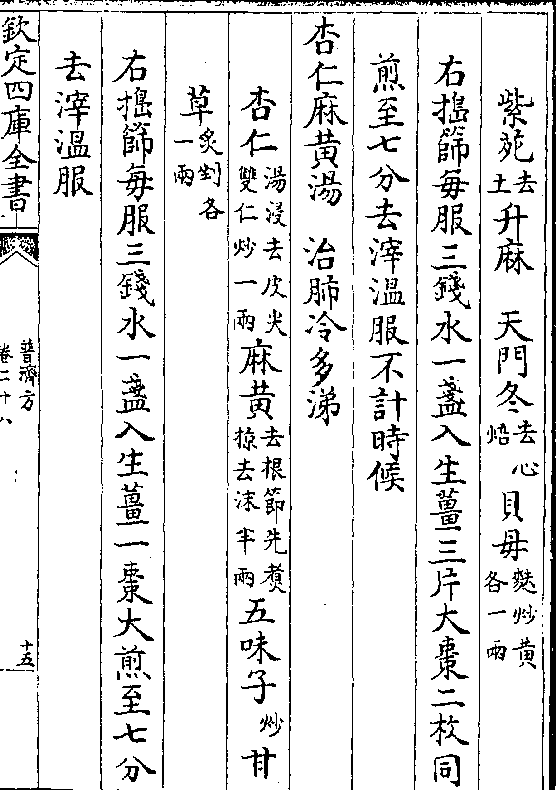 紫苑去土升麻　天門冬去心焙貝母麩炒黄各一兩
右搗篩每服三錢水一盞入生薑三片大棗二枚同
煎至七分去滓溫服不計時候
杏仁麻黄湯　治肺冷多涕
杏仁湯浸去皮尖雙仁炒一兩麻黄去根節先煑掠去沫半兩五味子炒甘
草炙剉各一兩
右搗篩每服三錢水一盞入生薑一棗大煎至七分
去滓溫服
欽定四庫全書
普濟方
卷二十八
十五